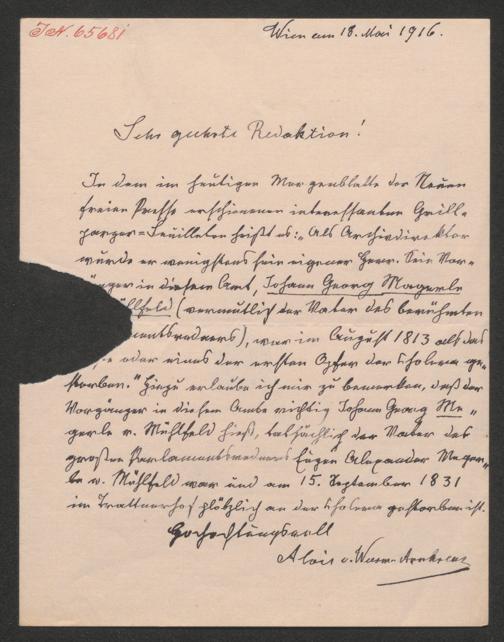 J.N. 65681
Wien am 18. Mai 1916.
Sehr geehrte Redaktion!
In dem im heutigen Morgenblatte der Neuen
freien Presse erschienenen interessanten Grill-
parzer=Feuilleton heißt es: „Als Archivdirektor
wurde er wenigstens sein eigener Herr. Sein Vor-
gänger in diesem Amt, Johann Georg Magerle
ühlfeld (vermutlich der Vater des berühmten
mentsredners), war im August 1813 als das
oder eines der ersten Opfer der Cholera ge-
storben.“ Hiezu erlaube ich mir zu bemerken, daß der
Vorgänger in diesem Amte richtig Johann Georg Me-
gerle v. Mühlfeld hieß, tatsächlich der Vater des
großen Parlamentsredners Eugen Alexander Meger-
le v. Mühlfeld war und am 15. September 1831
im Trattnerhof plötzlich an der Cholera gestorben ist.
Hochachtungsvoll
Alois v.